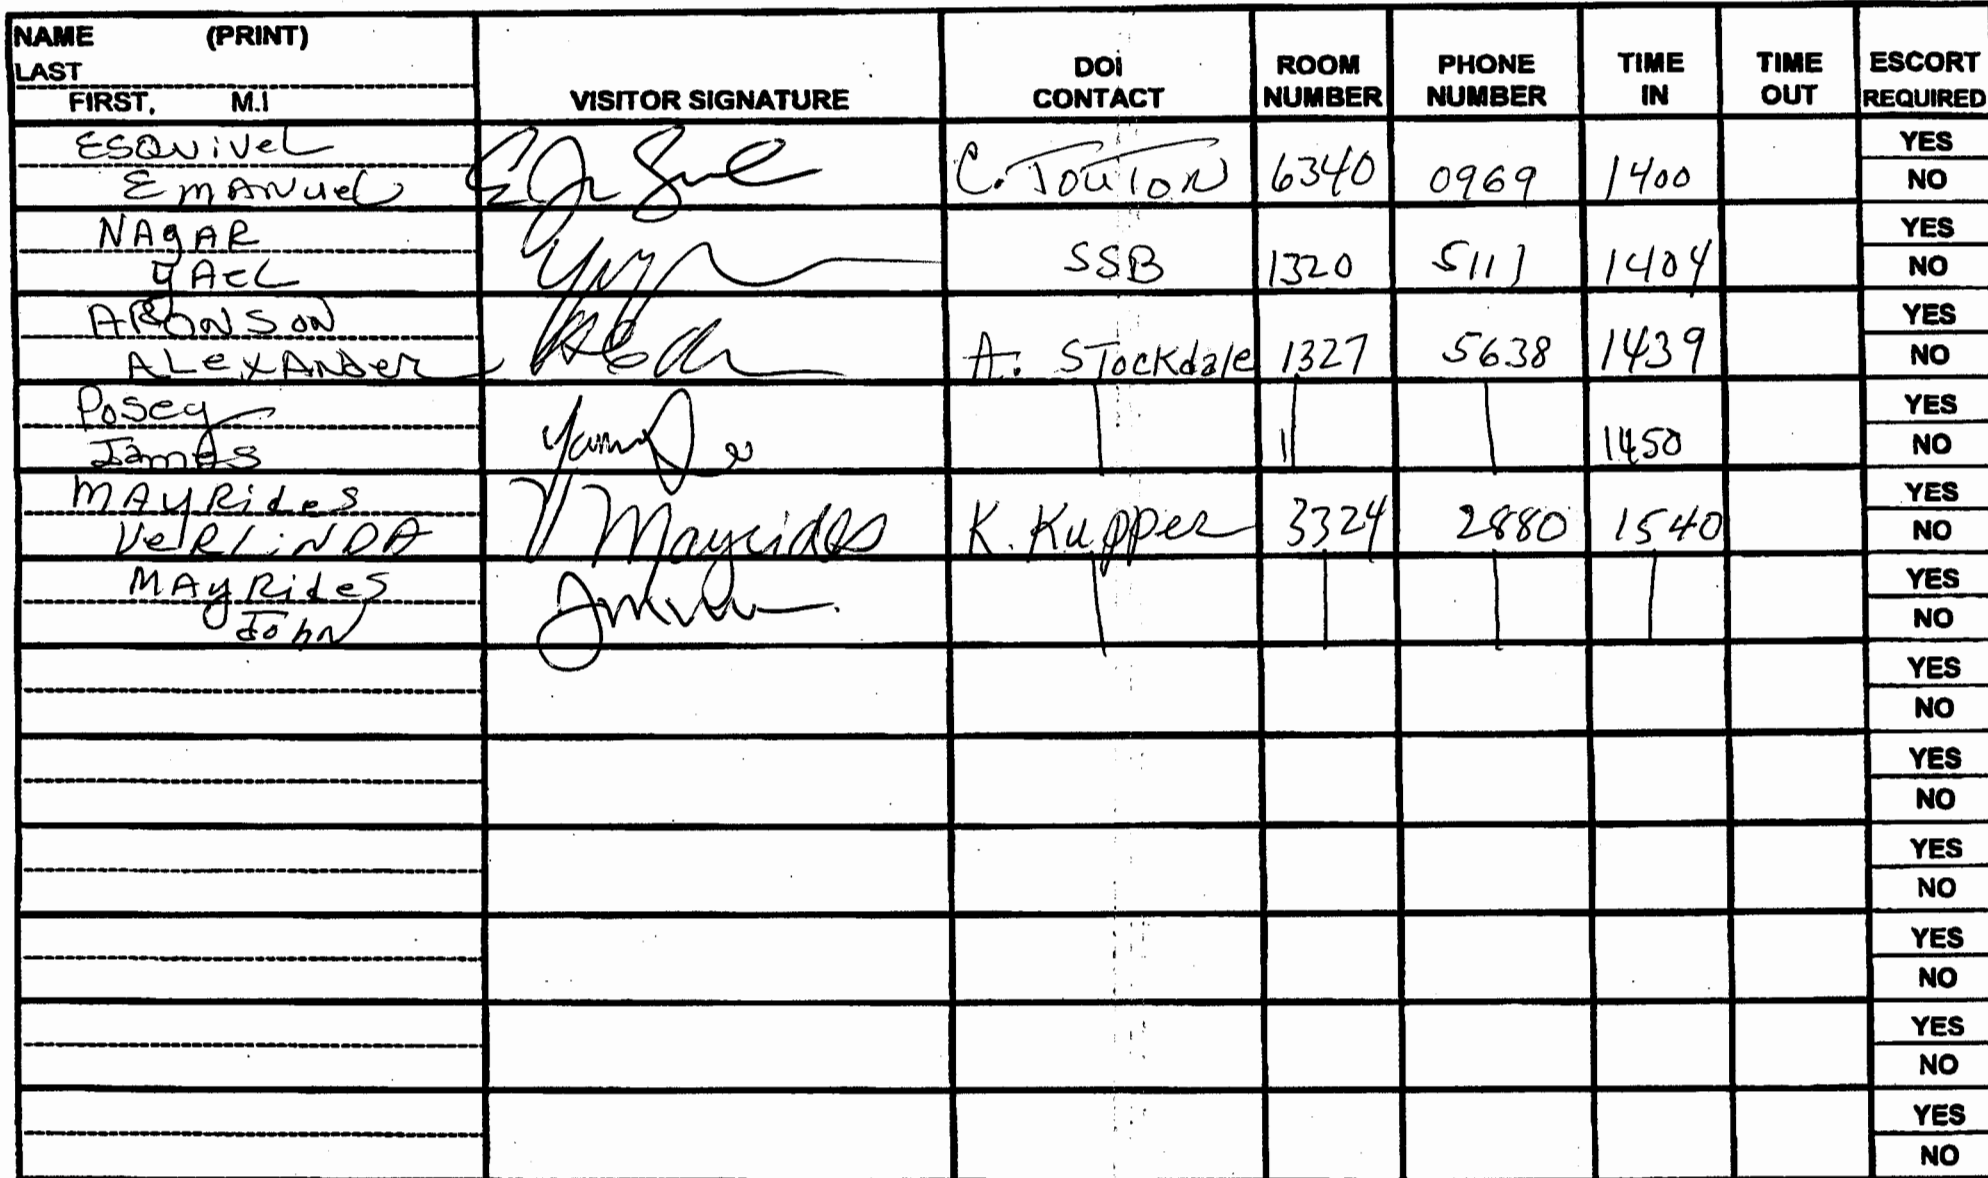 NAME (PRINT)
LAST
FIRST, M.I
VISITOR SIGNATURE
DOI CONTACT
ROOM NUMBER
PHONE NUMBER
TIME IN
TIME OUT
ESCORT REQUIRED
ESQUIVEL
EMANUEL
C. TOUTON 6340 0969 1400
YES
NO
NAGAR
YAEL
SSB 1320 5111 1404
YES
NO
ARONSON
ALEXANDER
A. STockdale 1327 5638 1439
YES
NO
Posey
James
1450
YES
NO
MAYRides
VERLINDA
V Mayrides
K. Kupper 3324 2880 1540
YES
NO
MAYRides
John
YES
NO
YES
NO
YES
NO
YES
NO
YES
NO
YES
NO
YES
NO